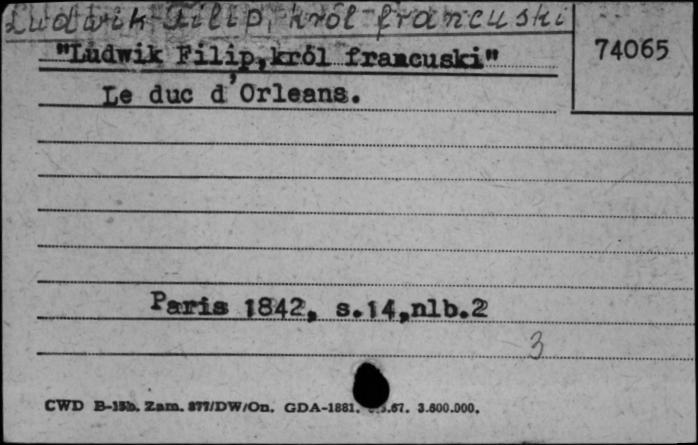 Ludwik Filip, król francuski
74065
"Ludwik Filip,król francuski"
Le duc d'Orleans.
Paris 1842, s.14,nlb.2
3
CWD B-15b. Zam. 877/DW/On. GDA-1881. .67. 3.600.000.